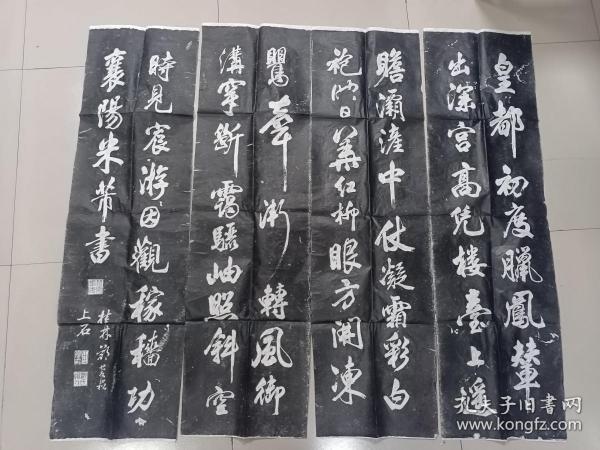 皇都初度臘鳳輦
出深宮高凭樓臺上遙
瞻灞滻中仗凝霜彩白
袍映日華紅柳眼方開凍
鸎聲漸轉風御
溝穿斷靄驪岫照斜空
時見宸游因觀稼穡功
襄陽米芾書
桂林
上石
孔夫子旧书网
www.kongfz.com